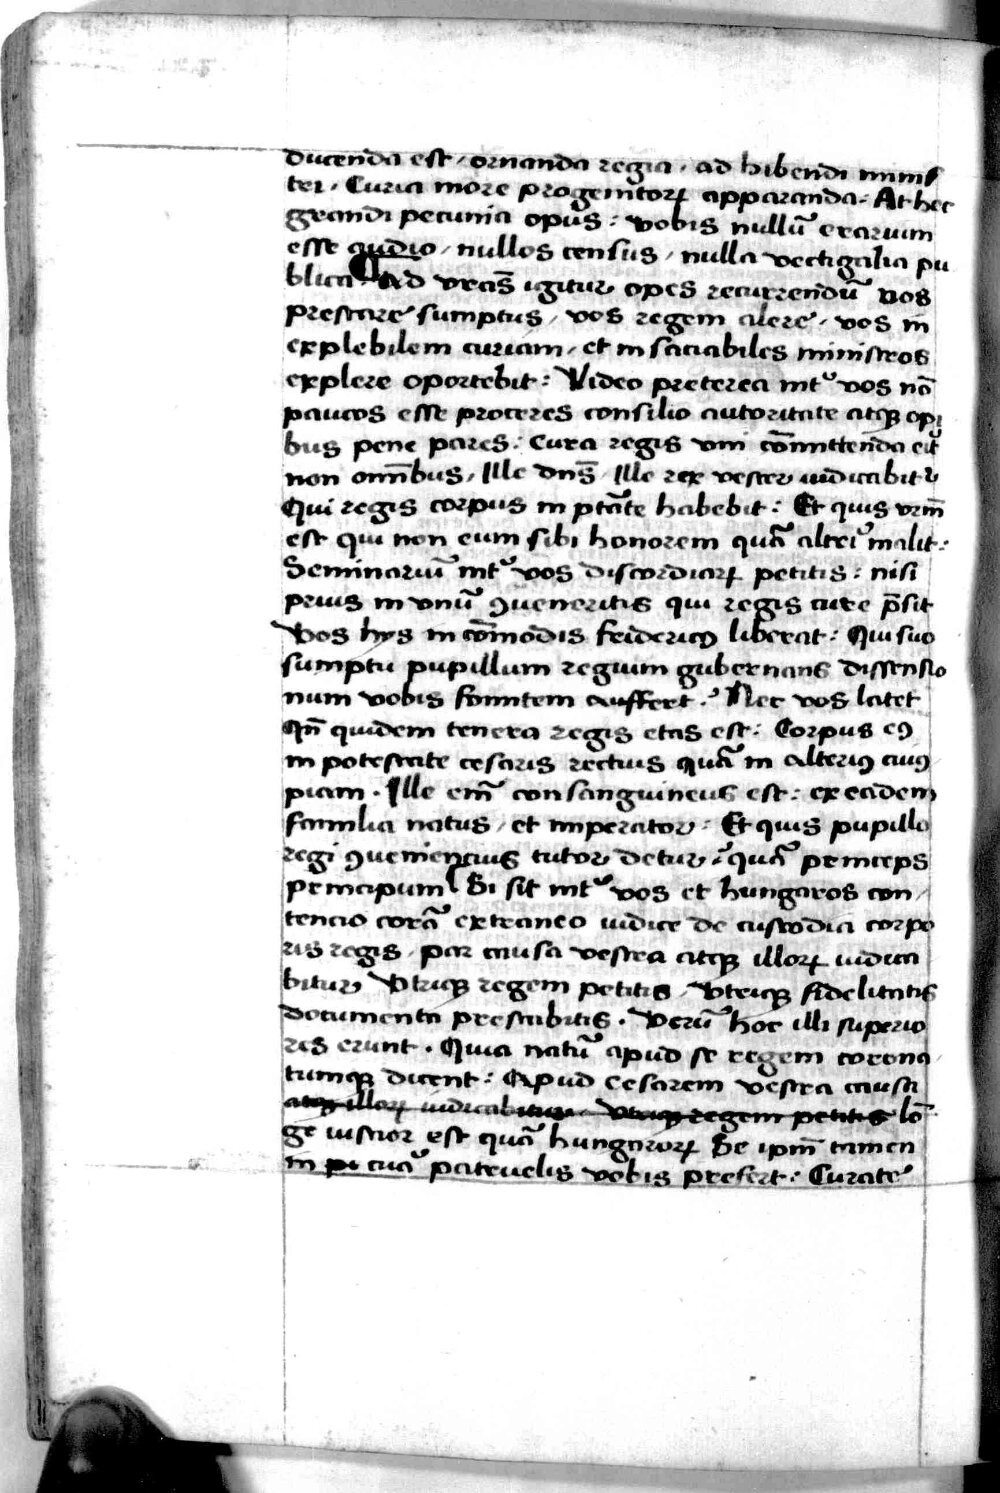 ducenda est / ornanda regia / ad hibendi minis
tri / Curia more progenitoꝝ apparanda / At hec
grandi pecunia opus : vobis nullū erarium
esse audio / nullos census / nulla vectigalia pu
blica ¶ Ad vr̄as igitur opes recurrendū Vos
prestare sumptus / vos regem alere / vos in
explebilem curiam / et in saciabiles ministros
explere oportebit : Video preterea int͛ vos nō
paucos esse proceres consilio autoritate atqꝫ opi
bus pene pares : Cura regis vni cōmittenda eīt
non om̄ibus / Ille dn̄s / Ille rex vester iudicabit͛
Qui regis corpus in ptāte habebit : Et quis vrm̄
est qui non eum sibi honorem quā alteri͛ malit :
Seminariū int͛ vos discordiaꝝ petitis : nisi
prius in vnū ꝯueneritis qui regis cure p̄sit
Vos hys in cōmodis fridericꝰ liberat : Qui suo
sumptu pupillum regium gubernans dissensio
num vobis fonntem auffert : Nec vos latet
qn̄ quidem tenera regis etas est : Corpus eꝰ
in potestate cesaris rectius quā in alteriꝰ cuiꝰ
piam . Ille em̄ consanguineus est : ex eadem
familia natus / et imperator : Et quis pupillo
regi ꝯueniencius tutor detur / quā princeps
principum Si sit int͛ vos et hungaros con /
tencio corā extraneo iudice de custodia corpo
ris regis / par causa vestra atqꝫ illoꝝ iudica
bitur Vtriqꝫ regem petitis / Vtriqꝫ fidelitatis
documenta prestabitis . Verū hoc illi superio
res erunt . Quia natū apud se regem corona /
tumqꝫ dicent : Apud cesarem vestra causa
atqꝫ illoꝝ iudicabitur Vtriqꝫ regem petitis lō
ge iuscior est quā hungaroꝝ Se ipm̄ tamen
in pi cuā patruelis vobis prefert : Curate